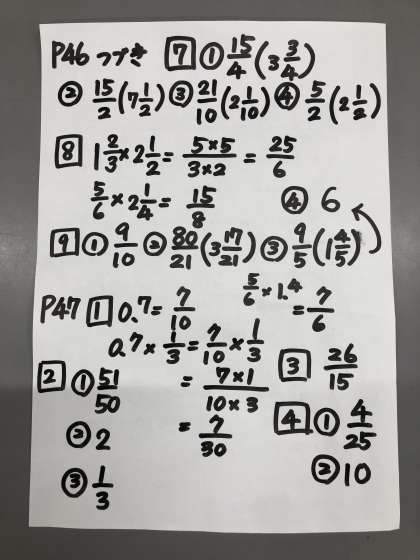 P46 つづき 7 ① 15/4 (3 3/4)
② 15/2 (7 1/2) ③ 21/10 (2 1/10) ④ 5/2 (2 1/2)
8 1 2/3 × 2 1/2 = 5×5/3×2 = 25/6
5/6 × 2 1/4 = 15/8 ④ 6
9 ① 9/10 ② 80/21 (3 17/21) ③ 9/5 (1 4/5)
P47 1 0.7 = 7/10 5/6 × 1.4 = 7/6
0.7 × 1/3 = 7/10 × 1/3
= 7×1/10×3
= 7/30
2 ① 51/50
② 2
③ 1/3
3 26/15
4 ① 4/25
② 10